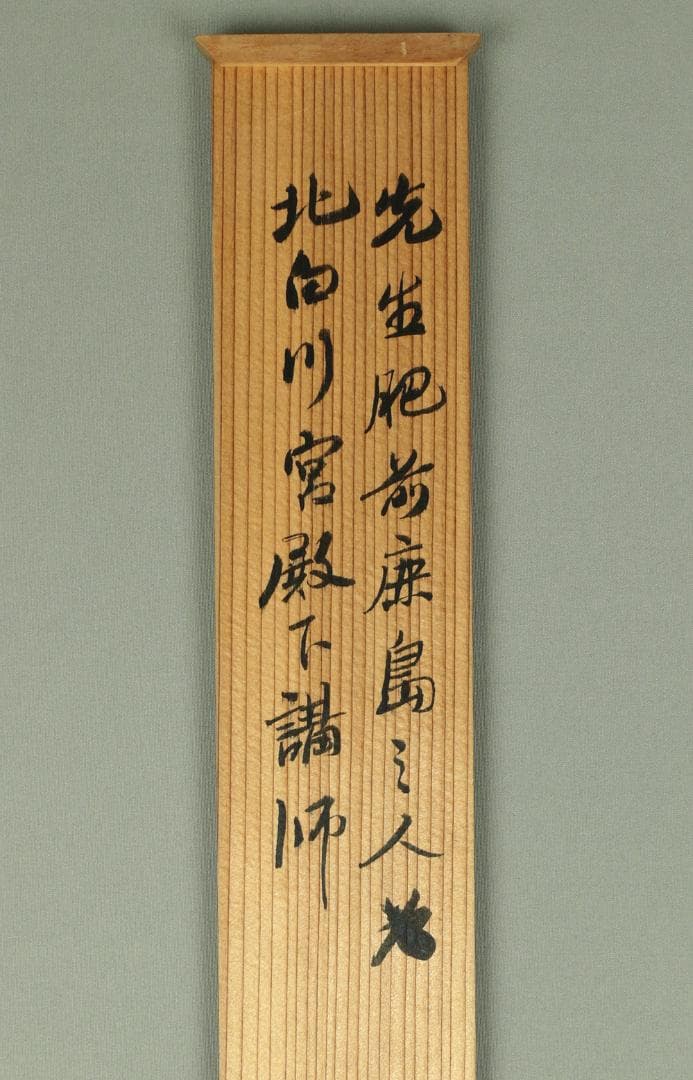 先生肥前鹿島之人為
北白川宮殿下講師